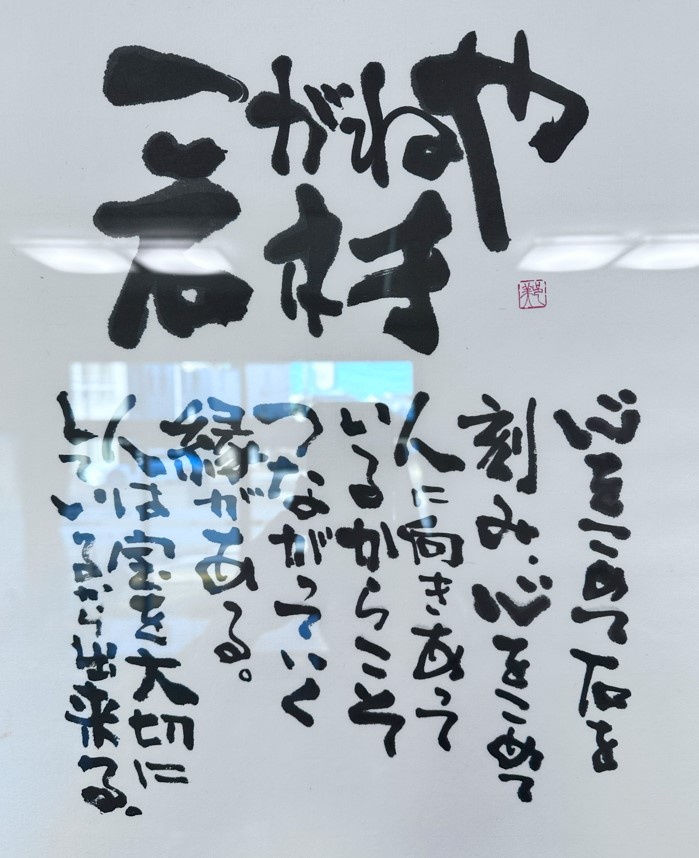 こがねや
石材
心をこめて石を
刻み、心をこめて
人に向きあって
いるからこそ
つながっていく
縁がある。
人は宝を大切に
しているから出来る。